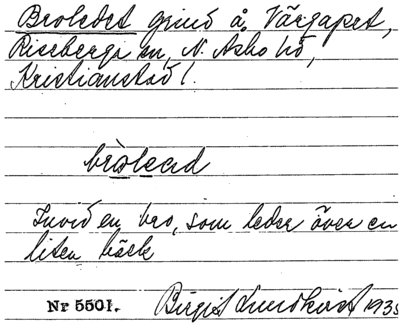 Broledet grind å Vårgapet,
Riseberga sn, N. Åsbo hd,
Kristianstad l.
brolead
Invid en bro, som leder över en
liten bäck
Nr 5501. Birgit Lundkvist 1935